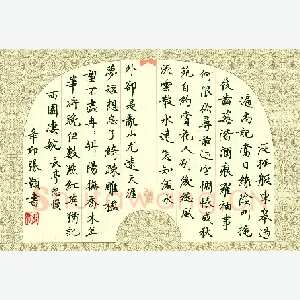 泛孤艇東皋過
遍尚記當日綠陰門掩
屐齒莓階酒痕羅袖事
何限欲尋前迹空惆悵成秋
苑自約賞花人別後總風
流雲散水遠怎知流水
外卻是亂山尤遠天涯
夢短想忘了綺疏雕檻
望不盡冉冉斜陽撫喬木年
華將晚但數點紅英猶識
西園淒婉 長亭怨慢
辛卯張